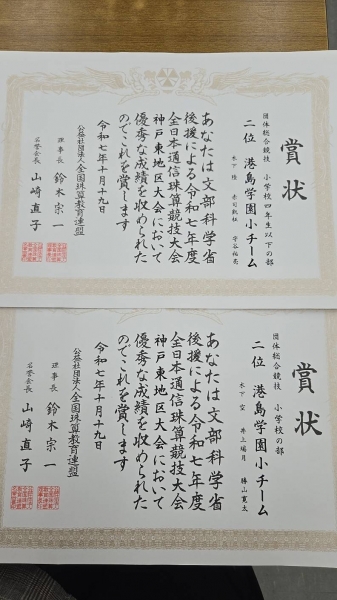 賞状
団体総合競技 小学校四年生以下の部
二位 港島学園小チーム
木下 陸
あなたは文部科学省
後援による令和七年度
全日本通信珠算競技大会
神戸東地区大会において
優秀な成績を収められた
のでこれを賞します
令和七年十月十九日
公益社団法人全国珠算教育連盟
理事長 鈴木宗一
名誉会長 山崎直子
賞状
団体総合競技 小学校の部
二位 港島学園小チーム
木下 空 井上陽月 勝山寛太
あなたは文部科学省
後援による令和七年度
全日本通信珠算競技大会
神戸東地区大会において
優秀な成績を収められた
のでこれを賞します
令和七年十月十九日
公益社団法人全国珠算教育連盟
理事長 鈴木宗一
名誉会長 山崎直子